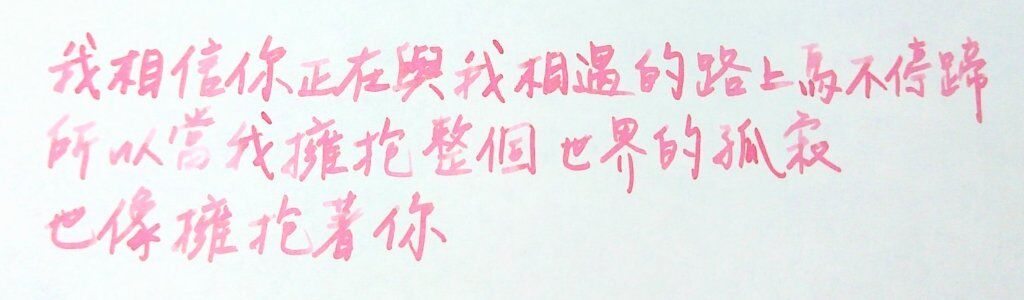 我相信你正在與我相遇的路上馬不停蹄
所以當我擁抱整個世界的孤寂
也像擁抱著你